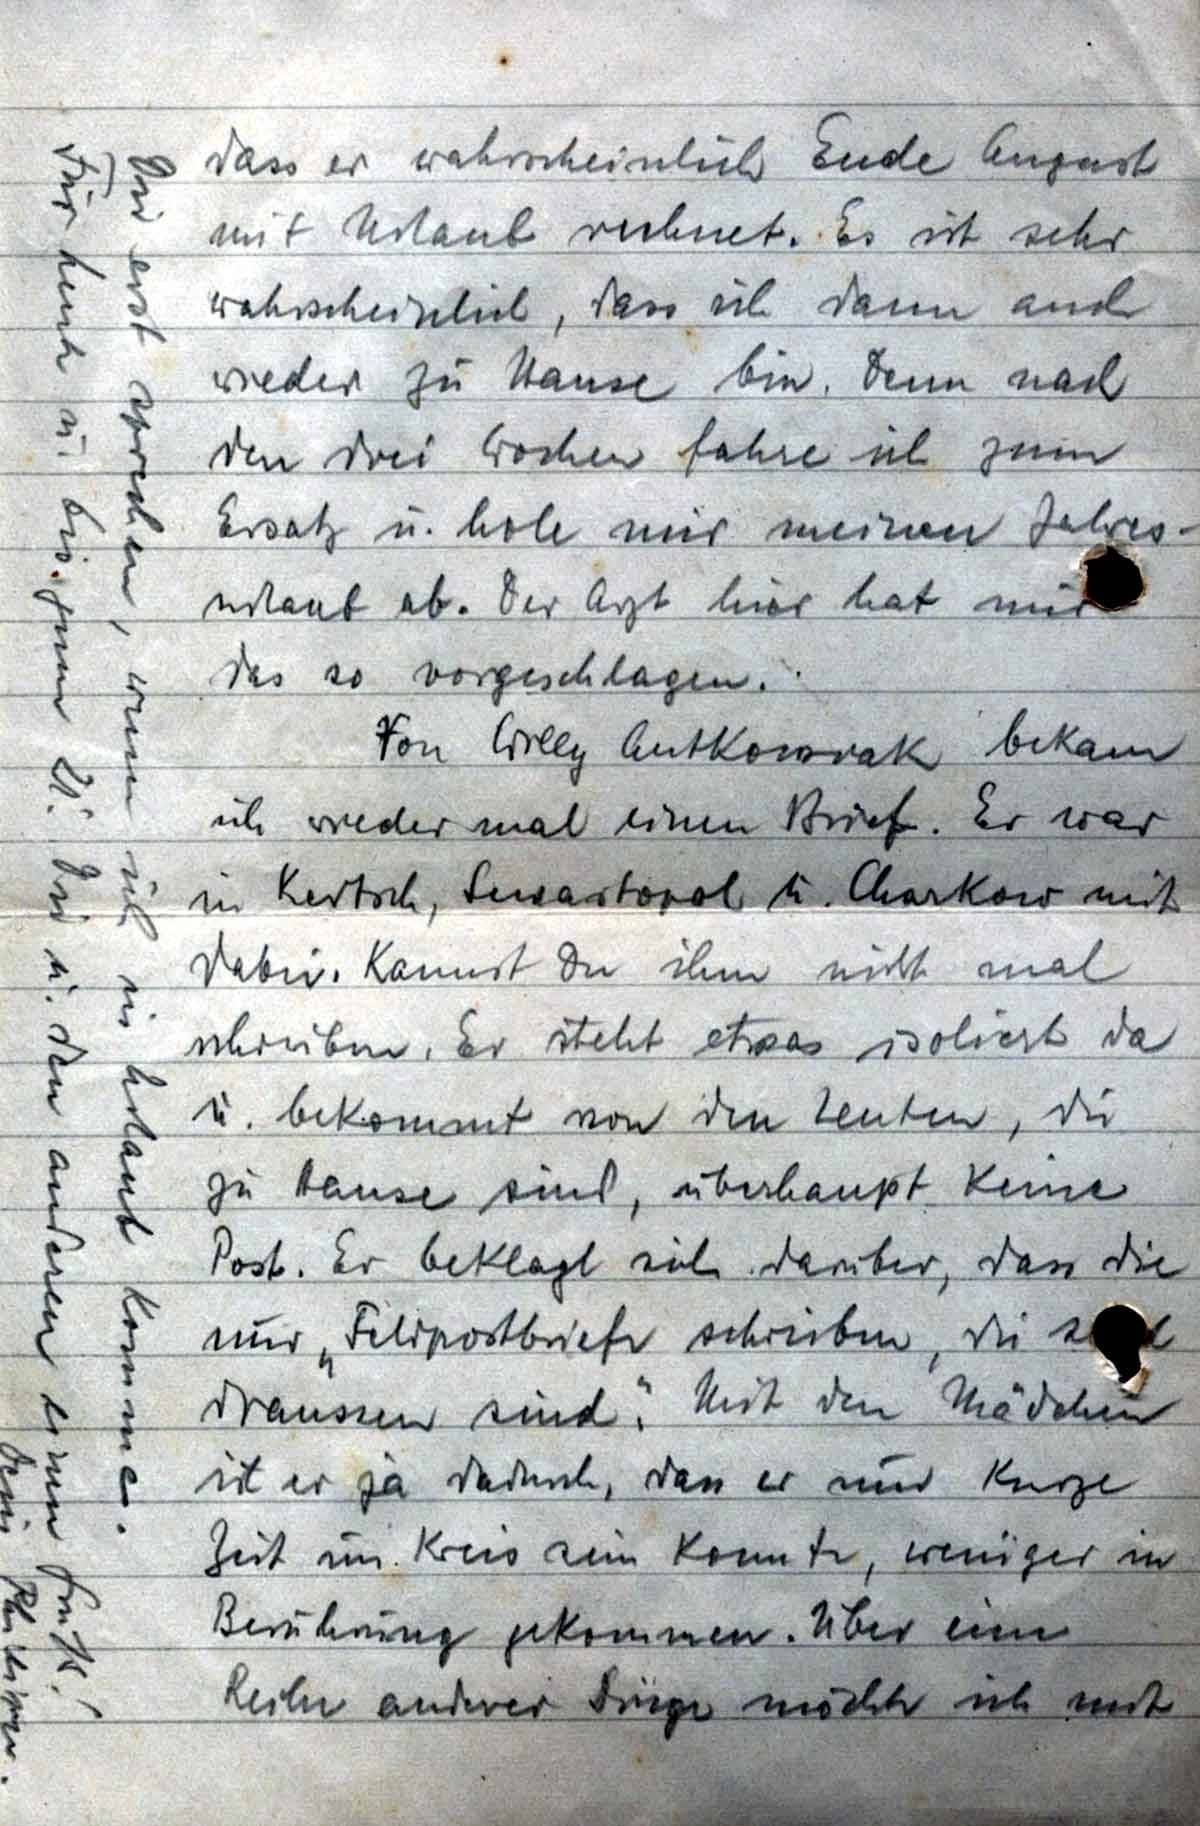 dass er wahrscheinlich Ende August
mit Urlaub rechnet. Es ist sehr
wahrscheinlich, dass ich dann auch
wieder zu Hause bin. Denn nach
den drei Wochen fahre ich zum
Ersatz u. hole mir meinen Jahres-
urlaub ab. Der Arzt hier hat mir
das so vorgeschlagen.
Von Willy Gutkowsak bekam
ich wieder mal einen Brief. Er war
in Kertsch, Sewastopol u. Charkow mit
dabei. Kannst Du ihm nicht mal
schreiben. Er steht etwas isoliert da
u. bekommt von den Leuten, die
zu Hause sind, überhaupt keine
Post. Er beklagt sich darüber, dass die
nur „Feldpostbriefe schreiben, die
draussen sind". Mit den Mädchen
ist er ja dadurch, dass er nur kurze
Zeit im Kreis sein konnte, weniger in
Berührung gekommen. Über eine
Reihe anderer Dinge möchte ich mit
Dir erst sprechen, wenn ich in Urlaub komme.
Für heute u. bis zum Dir u. den anderen einen
Dein